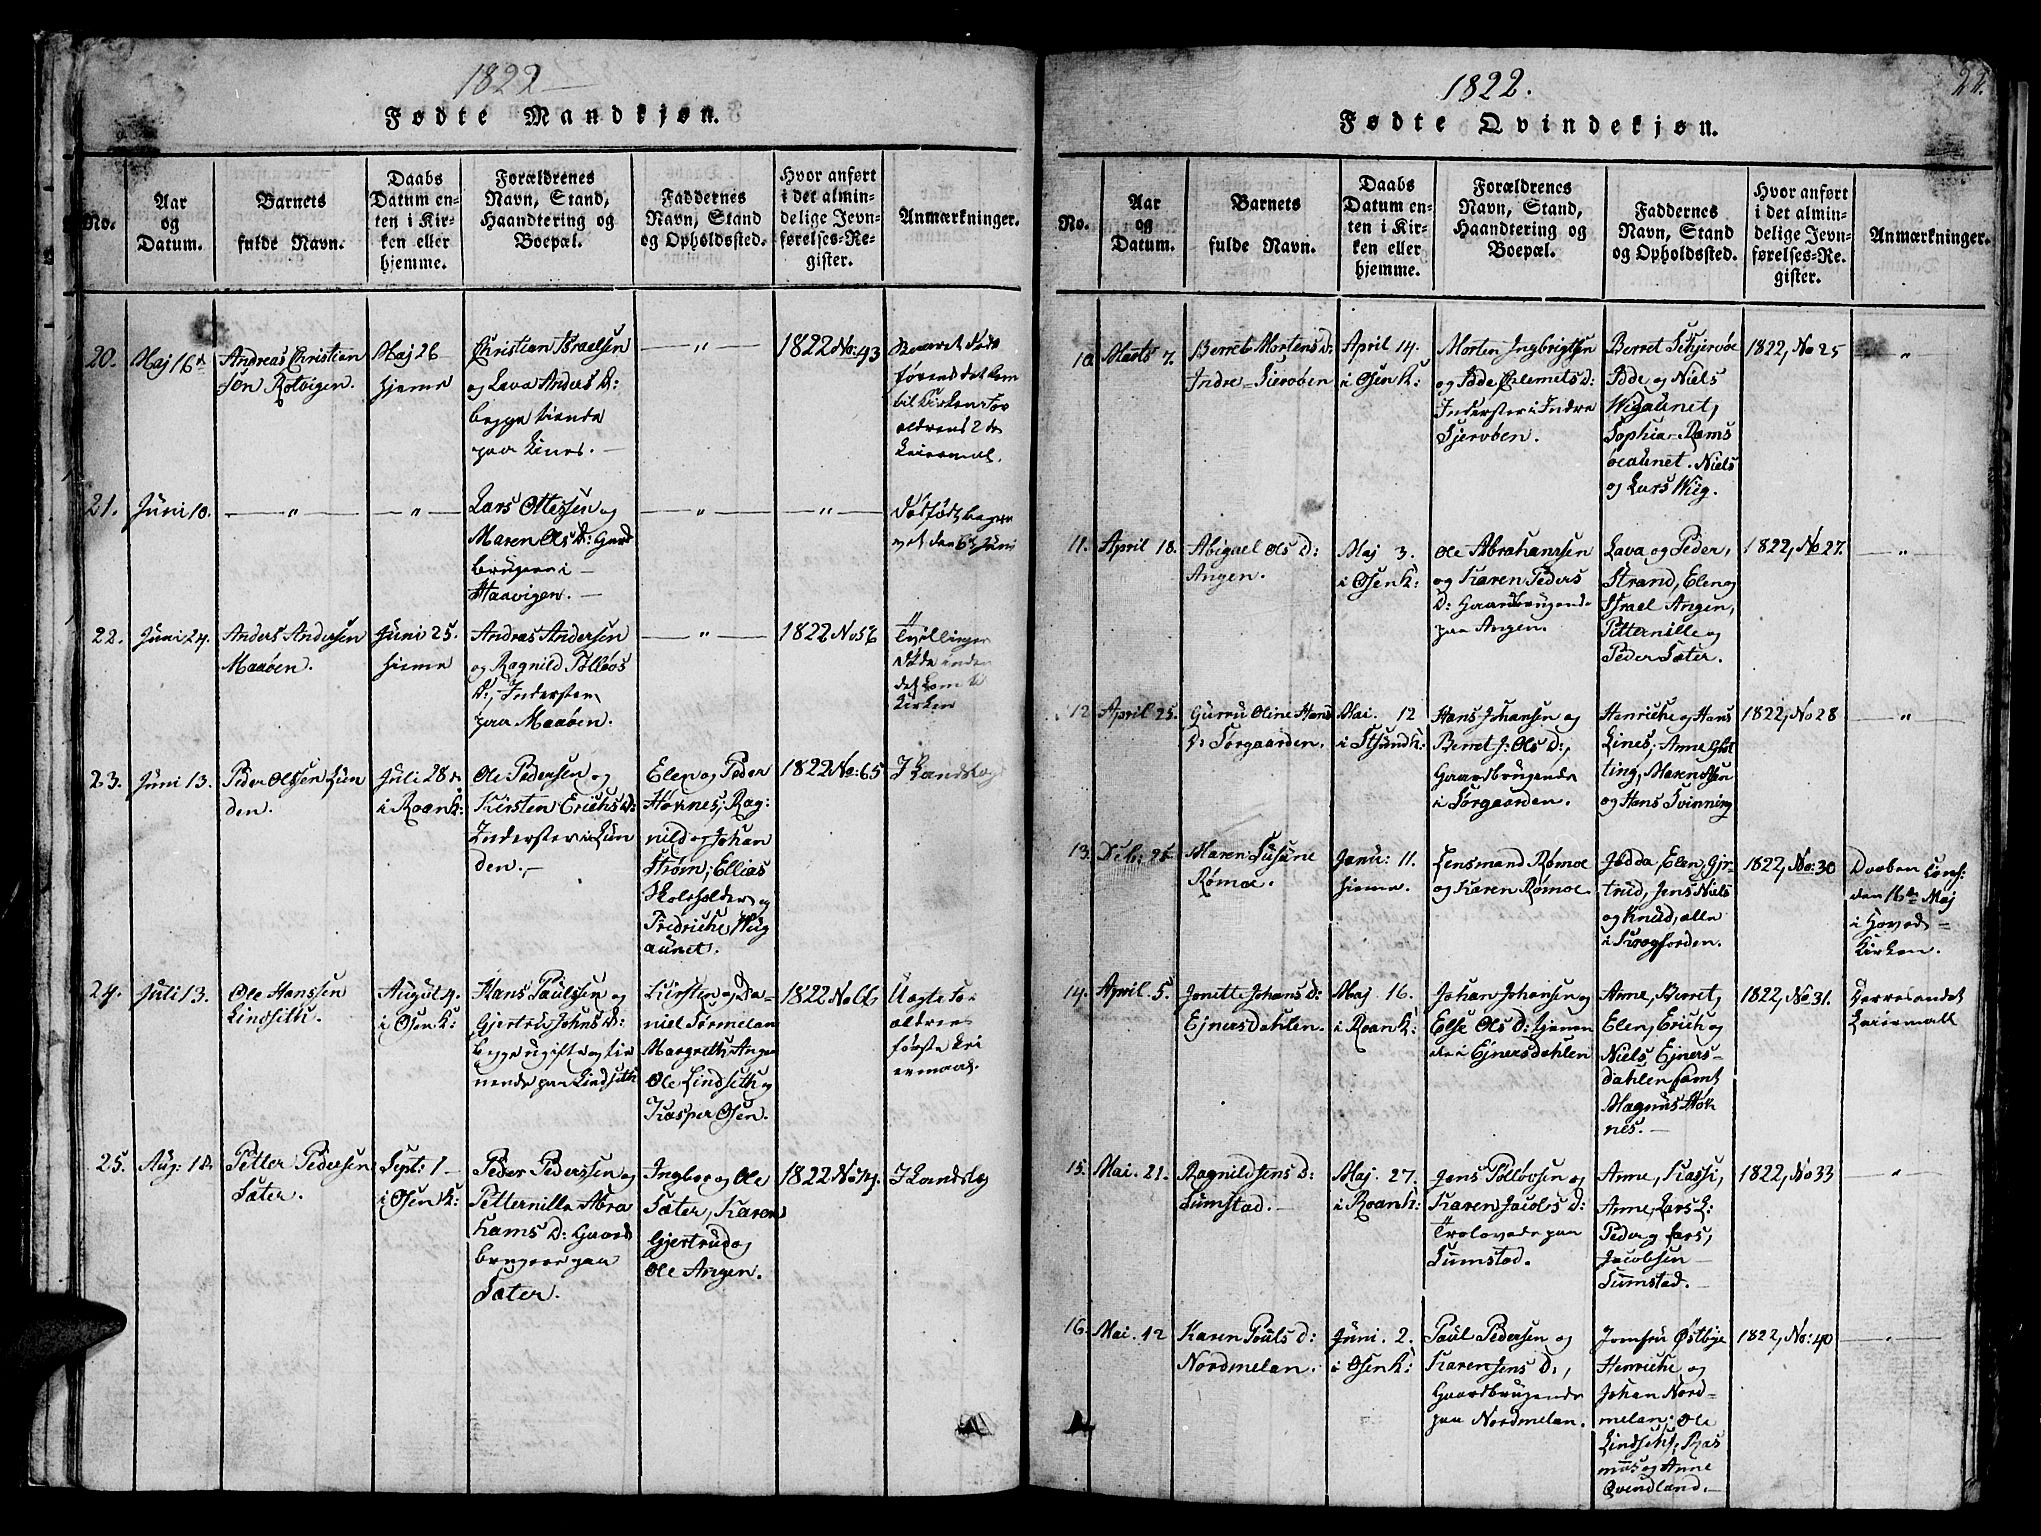 1822
Fødte Mandkjøn.
No.
Aar
og
Datum.
Barnets
fulde Navn.
Daabs
Datum en-
ten i Kir-
ken eller
hjemme.
Forældrenes
Navn, Stand,
Haandtering og
Boepæl.
Faddernes
Navn, Stand
og Opholdssted.
Hvor anført
i det almin-
delige Jevn-
førelses-Re-
gister.
Anmærkninger.
20.
Maj 16de
Andreas Christian
sen Rotvigen.
Maj 26
hjeme
Christian Israelsen
og Lava Anders D:
begge tienende
paa Lines. —
— „ —
1822 No: 43
det kom
til Kirken For
ældrenes 2 de
Leiermal.
21.
Juni 10.
— „ —
— „ —
Lars Ottessen og
Maren Ols D: Gard
brugere i —
Haavigen. —
— „ —
— „ —
Dødfødt begra
vet den Juni
22.
Juni 24.
Anders Andersen
Maaøen.
Juni 25.
hieme
Andras Andersen
og Ragnild Tolløvs
D:, Inderster
paa Maaøen.
— „ —
1822 No 56
Tvillinger
Døde inden
det kom til
Kirken
23.
Juni 13.
Peder Olssen Lun
den.
Juli 28 de
i Roan K:
Ole Pedersen og
Kirsten Erichs D:
Inderster i Lun
den. —
Elen og Peder
Hovnes; Rag:
nild og Johan
Strøm; Ellias
Skoleholder og
Fredriche Wiig
aunet.
1822 No: 65
I Landsbog
24.
Juli 13.
Ole Hanssen
Lindseth.
August 4.
i Osen K:
Hans Paulssen og
Gjertru Johns D:
begge ugifte og tie
nende paa Lindseth
Kirsten og Da-
niel Sørmelan
Margreth Angen
Ole Lindseth og
Kasper Osen.
1822 No 66
Uægte For
ældrenes
første Lei
ermaal.
25.
Aug: 18.
Petter Pedersen
Sæter.
Sept: 1 —
i Osen K:
Peder Pederssen og
Petternille Abra
hams D: Gaard
brugere paa
Sæter.
Ingbor og Ole
Sæter, Karen
Gjertrud og
Ole Angen.
1822 No 74.
I Landsbog
1822.
22.
Fødte Qvindekjøn.
No.
Aar
og
Datum.
Barnets
fulde Navn.
Daabs
Datum en-
ten i Kir-
ken eller
hjemme.
Forældrenes
Navn, Stand,
Haandtering og
Boepæl.
Faddernes
Navn, Stand
og Opholdssted.
Hvor anført
i det almin-
delige Jevn-
førelses-Re-
gister.
Anmærkninger.
10.
Marts 7.
Berret Mortens D:
Indre-Sjervøen
April 14.
i Osen K:
Morten Ingbrigtsen
og Clemets D:
Inderster i Indre
Sjervøen.
Berret Schjervøe
og Niels
Wigaunet,
Sophia Rams
øeaunet. Niels
og Lars Wiig.
1822, No 25
„
11.
April 18.
Abigael Ols D:
Angen.
Maj 3.
i Osen K:
Ole Abrahamsen
og Karen Peders
D: Gaardbrugende
paa Angen.
Lava og Peder,
Strand, Elen og
Israel Angen,
Petternille og
Peder Sæter.
1822, No 27.
— „ —
12
April 25.
Gurru Oline Hans
D: Sørgaarden.
Mai. 12
i Stsund K:
Hans Johansen og
Berret J: Ols D:,
Gaardbrugende
i Sørgaarden.
Henriche og Hans
Lines; Anne
ting, Maren
og Hans Svinning
1822, No 28
— „ —
13.
Deb: 25
Maren Susune
Rømoe.
Janu: 11.
hieme.
Lensmand Rømoe
og Karen Rømoe
Jedda, Elen, Gjer-
trud, Jens Niels
og Knud, alle
i Skrogfjorden.
1822, No: 30
Daaben Conf:
den 16de Maj
i Hoved-
Kirken.
14.
April 5.
Jonette Johans D:
Ejnersdahlen.
Maj. 16.
i Roan K:
Johan Johansen og
Else Ols D: tjenen
de i Ejnersdahlen
Anne, Berret,
Elen, Erich og
Niels Ejners-
dahlen samt
Magnus Hok
nes. —
1822, No. 31.
Leiermall
15.
Mai. 21.
Ragnild Jens D:
Sumstad. —
Maj. 27.
i Roan K:
Jens Tolløvsen og
Karen Jacobs D:
Trolovede paa
Sumstad.
Anne, Kassi,
Anne, Lars L:
Peder og Lars,
Jacobsen —
Sumstad. —
1822, No 33
„
16.
Mai. 12
Karen Pouls D:
Nordmelan.
Juni. 2.
i Osen K:
Paul Pedersen og
Karen Jens D:,
Gaardbrugende
paa Nordmelan.
Jomfru Østbye
Henriche og
Johan Nord-
melan: Ole
Lindseth, Ras
mus og Anne
Qvindland. —
1822, No: 40
— „ —